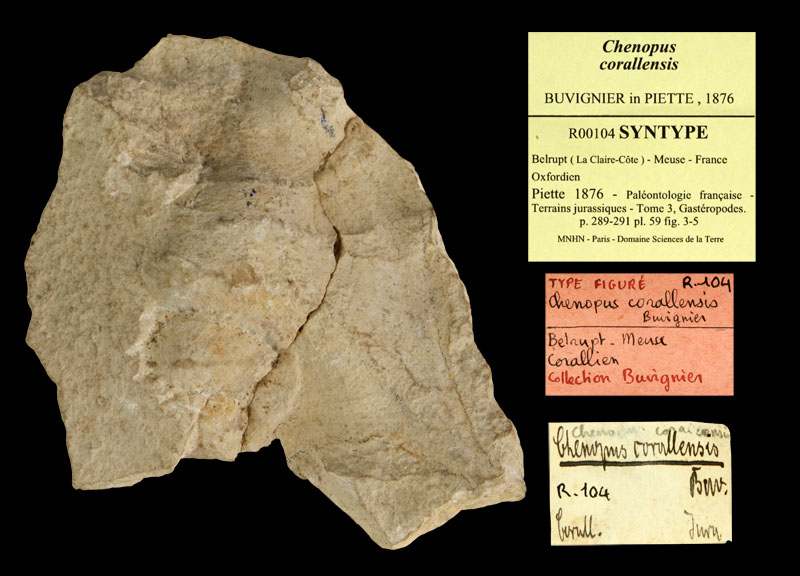 Chenopus
corallensis
BUVIGNIER in PIETTE , 1876
R00104 SYNTYPE
Belrupt ( La Claire-Côte ) - Meuse - France
Oxfordien
Piette 1876 - Paléontologie française -
Terrains jurassiques - Tome 3, Gastéropodes.
p. 289-291 pl. 59 fig. 3-5
MNHN - Paris - Domaine Sciences de la Terre
TYPE FIGURÉ R.104
Chenopus corallensis
Buvignier
Belrupt - Meuse
Corallien
Collection Buvignier
Chenopus corallensis
Buv.
R.104
Corall. Jura.